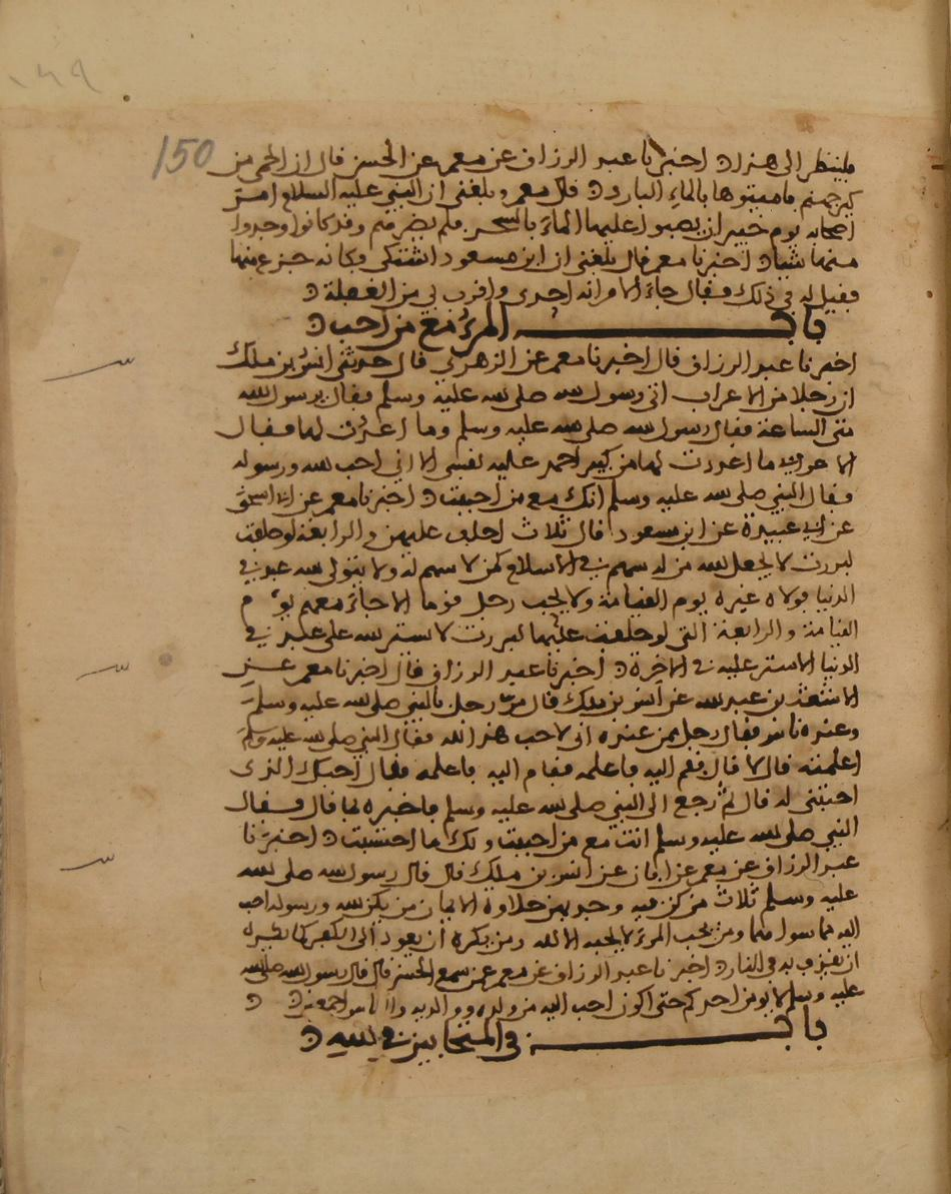 ١٤٩
150
فلينظر الى هذا ه اخبرنا عبد الرزاق عن معمر عن الحسن قال ان الحمى من
كير جهنم فاميتوها بالماء البارد ه قال معمر وبلغني ان النبي عليه السلام امر
اصحابه يوم خيبر ان يصبوا عليها الماء بالسحر فلم يضرهم وقد كانوا وجدوا
منها شيا ه اخبرنا معمر قال بلغني ان ابن مسعود اشتكى فكانه جزع منها
فقيل له في ذلك فقال جاء الامر انه اجرى واقرب بي من الغفلة ه
باب المرء مع من احب ه
اخبرنا عبد الرزاق قال اخبرنا معمر عن الزهري قال حدثني انس بن ملك
ان رجلا من الاعراب اتى رسول الله صلى الله عليه وسلم فقال يرسول الله
متى الساعة فقال رسول الله صلى الله عليه وسلم وما اعددت لها فقال
الاعرابي ما اعددت لها من كبير احمد عليه نفسي الا اني احب الله ورسوله
فقال النبي صلى الله عليه وسلم انك مع من احببت ه اخبرنا معمر عن ابي اسحق
عن ابي عبيدة عن ابن مسعود قال ثلاث احلف عليهن والرابعة لو حلفت
لبررت لا يجعل الله من له سهم في الاسلام كمن لا سهم له ولا يتولى الله عبد في
الدنيا فولاه غيره يوم القيامة ولا يحب رجل قوما الا جاء معهم يوم
القيامة والرابعة التي لو حلفت عليها لبررت لا يستر الله على عبد في
الدنيا الا ستر عليه في الاخرة ه اخبرنا عبد الرزاق قال اخبرنا معمر عن
الاشعث بن عبد الله عن انس بن ملك قال مر رجل بالنبي صلى الله عليه وسلم
وعنده ناس فقال رجل ممن عنده اني لاحب هذا لله فقال النبي صلى الله عليه وسلم
اعلمته قال لا قال فقم اليه فاعلمه فقام اليه فاعلمه فقال احبك الذي
احببتني له قال ثم رجع الى النبي صلى الله عليه وسلم فاخبره بما قال فقال
النبي صلى الله عليه وسلم انت مع من احببت ولك ما احتسبت ه اخبرنا
عبد الرزاق عن معمر عن ابان عن انس بن ملك قال قال رسول الله صلى الله
عليه وسلم ثلاث من كن فيه وجد بهن حلاوة الايمان من يكن الله ورسوله احب
اليه مما سواهما ومن يحب المرء لا يحبه الا لله ومن يكره ان يعود الى الكفر كما يكره
ان يقذف به في النار ه اخبرنا عبد الرزاق عن معمر عمن سمع الحسن قال قال رسول الله صلى الله
عليه وسلم لا يؤمن احدكم حتى اكون احب اليه من ولده ووالديه والناس اجمعين ه ه
باب في المتحابين في الله ه